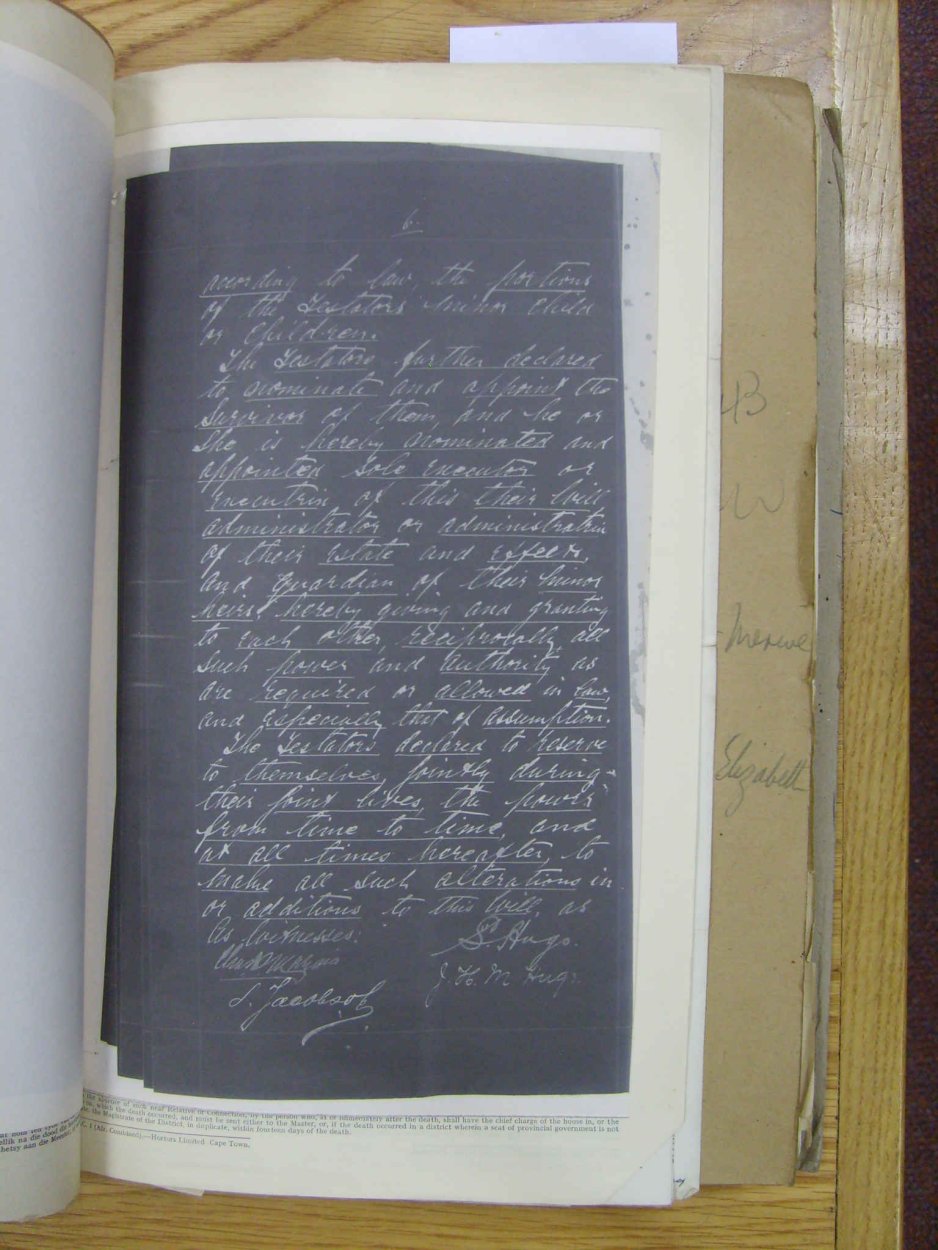 6.
according to law, the portions
of the Testators' minor child
or children.
The Testators further declared
to nominate and appoint the
Survivor of them, and he or
she is hereby nominated and
appointed Sole Executor or
Executrix of this their Will
administrator or administratrix
of their Estate and Effects,
and Guardian of their minor
heirs, hereby giving and granting
to each other, reciprocally, all
such power and authority as
are required or allowed in law,
and especially that of assumption.
The Testators declared to reserve
to themselves, jointly during
their joint lives, the power
from time to time, and
at all times hereafter, to
make all such alterations in
or additions to this Will, as
As Witnesses:
S. Hugo.
J. H. M. Hugo
S. Jacobsoh
B
W
Merwe
Elizabeth
such near Relative or Connection, by the person who, at or immediately after the death, shall have the chief charge of the house in, or the
in, which the death occurred, and must be sent either to the Master, or, if the death occurred in a district wherein a seat of provincial government is not
the Magistrate of the District, in duplicate, within fourteen days of the death.
(Alt. Combined).—Hortors Limited Cape Town.